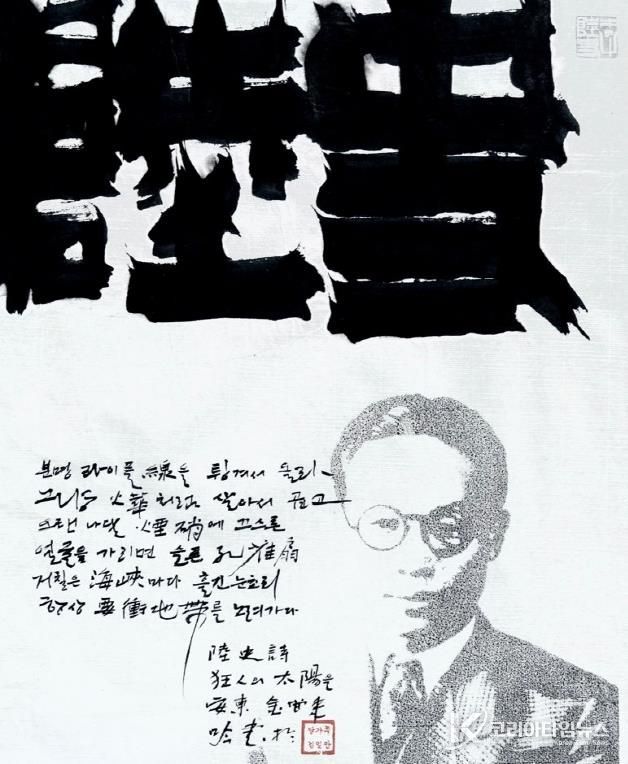 분명 라이플 線을 튕겨서 올라
그냥 火華처럼 살아서 곱고
오랜 나달 煙硝에 끄스른
얼굴을 가리면 슬픈 孔雀扇
거칠은 海峽마다 흘긴 눈초리
항상 要衝地帶를 노려가다
陸史詩
狂人의 太陽을
安東
코리아타임뉴스